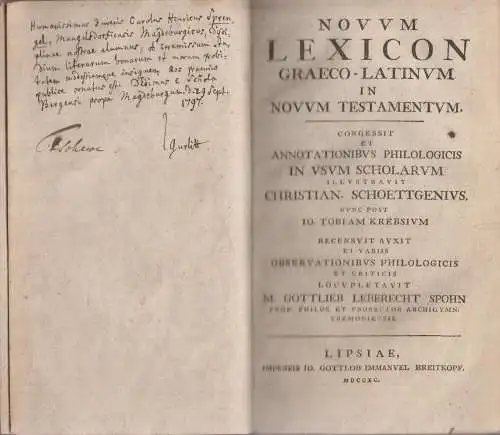 Humanissimus Juvenis Carolus Henricus Spren-
gel, Mangelsdorfiensis Magdeburgicus, Disci-
plinae nostrae alumnus, ob
dium literarum bonarum et morum probi-
tatem modestiamque insignem hoc praemio
publice ornatus est. Dedimus e Schola
Bergensi prope Magdeburgum. d. 29 Sept.
1797.
Gurlitt
NOVVM
LEXICON
GRAECO-LATINVM
IN
NOVVM TESTAMENTVM.
CONGESSIT
ET
ANNOTATIONIBVS PHILOLOGICIS
IN VSVM SCHOLARVM
ILLVSTRAVIT
CHRISTIAN. SCHOETTGENIVS.
NVNC POST
IO. TOBIAM KREBSIVM
RECENSVIT AVXIT
ET VARIIS
OBSERVATIONIBVS PHILOLOGICIS
ET CRITICIS
LOCVPLETAVIT
M. GOTTLIEB LEBERECHT SPOHN
PROF. PHILOS. ET PRORECTOR ARCHIGYMN.
TREMONIENSIS.
LIPSIAE,
IMPENSIS IO. GOTTLOB IMMANVEL BREITKOPF.
MDCCXC.